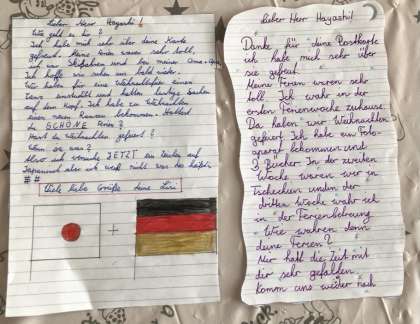 Lieber Herr Hayashi!
Wie geht es dir?
Ich habe mich sehr über deine Karte
gefreut. Meine Ferien waren sehr toll,
ich war Skifahren und bei meiner Oma + Opa.
Ich hoffe wir sehen uns bald wieder.
Wir haben für eine Weihnachtsfeier einen
Tanz und hatten lustige Sachen
auf dem Kopf. Ich habe zu Weihnachten
einen neuen bekommen. Hattest
du SCHÖNE Ferien?
Hast du Weihnachten gefeiert?
Wenn ja was?
JETZT ein
Japanisch aber ich weiß nicht was das heißt.
##
Viele liebe Grüße deine
+
Lieber Herr Hayashi!
Danke für deine Postkarte
ich habe mich sehr über
sie gefreut.
Meine Ferien waren sehr
toll. Ich wahr in der
ersten Ferienwoche zuhause.
Da haben wir Weihnachten
gefeiert. Ich habe ein Foto-
aparat bekommen und
3 Bücher. In der zweiten
Woche waren wir in
Tschechien und in der
dritten Woche wahr ich
in der Ferienbetreung.
Wie wahren denn
deine Ferien?
Mir hat die Zeit mit
dir sehr gefallen.
Komm uns wieder nach